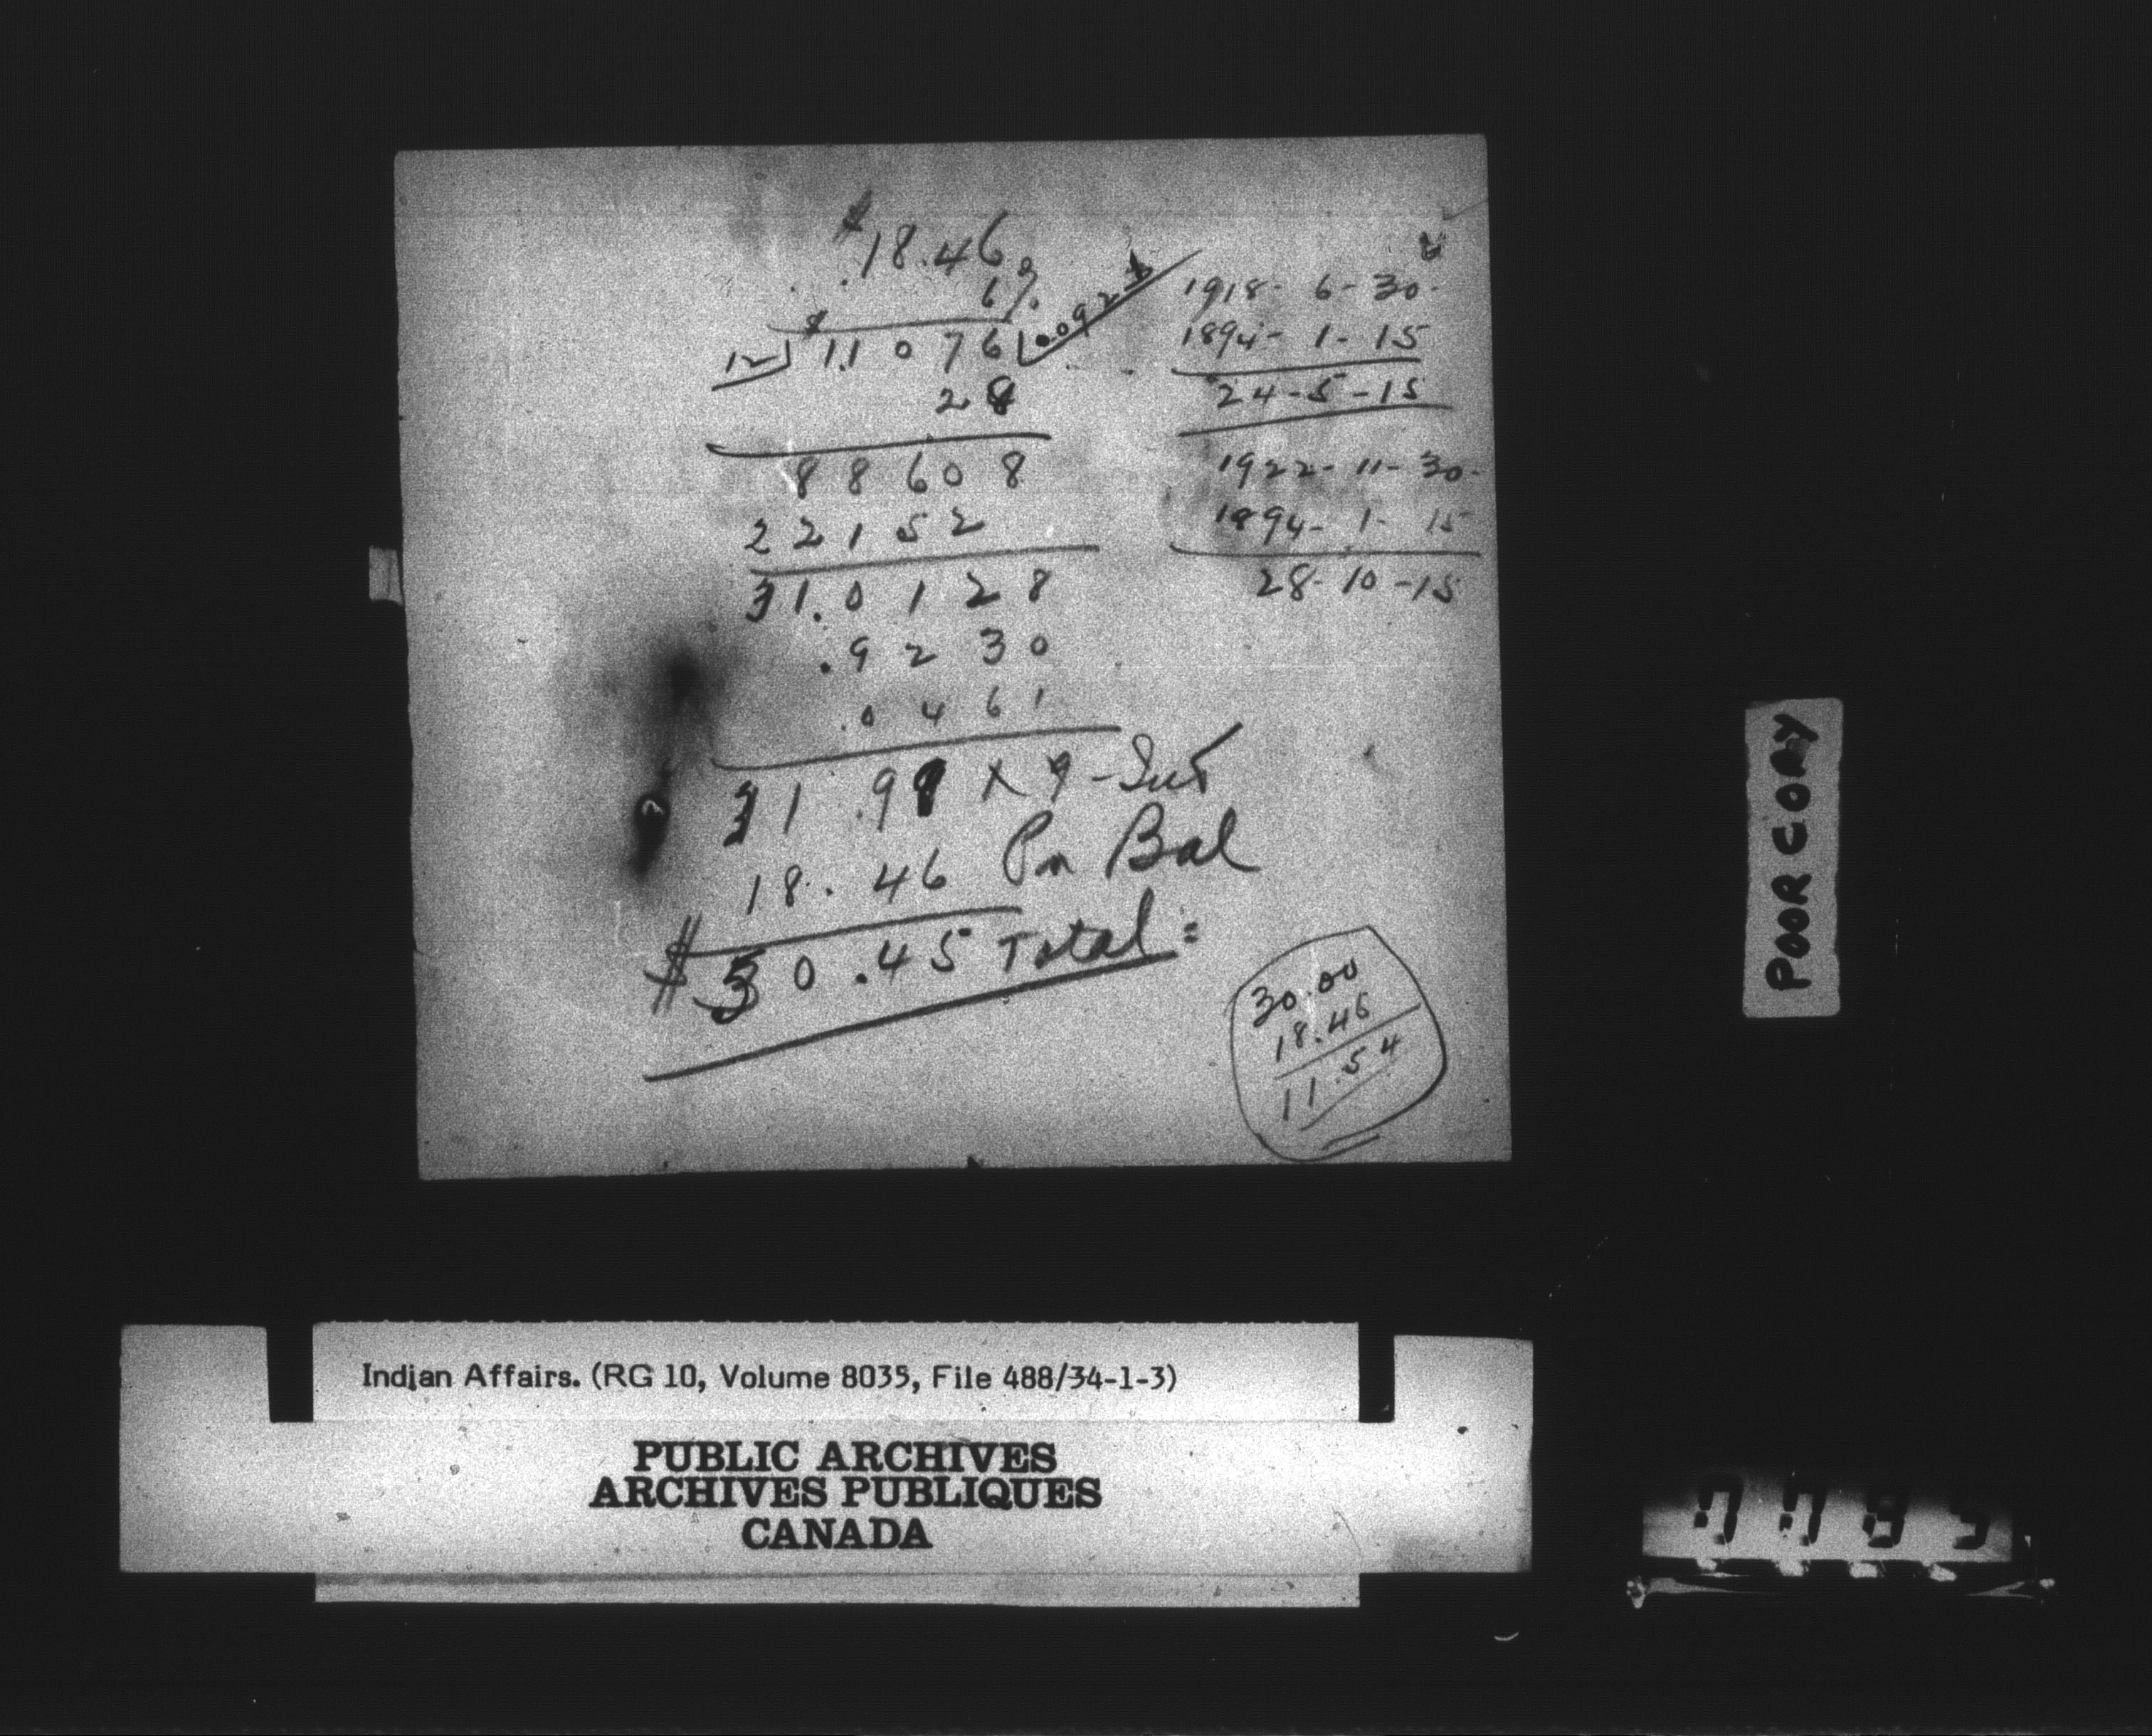 $18.46
6%
12 $1.1076 .0923
28
88608
22152
31.0128
.9230
.0461
31.98 x 9 - Int
18.46 Pn Bal
$50.45 Total =
1918 - 6 - 30 -
1894 - 1 - 15
24 - 5 - 15
1922 - 11 - 30 -
1894 - 1 - 15
28 - 10 - 15
30.00
18.46
11.54
POOR COPY
Indian Affairs. (RG 10, Volume 8035, File 488/34-1-3)
PUBLIC ARCHIVES
ARCHIVES PUBLIQUES
CANADA